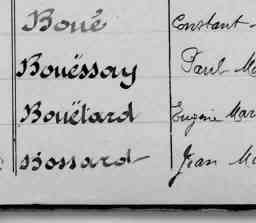 Boué Constant
Bouëssay Paul
Bouëtard Eugène Mar
Bossard Jean Ma